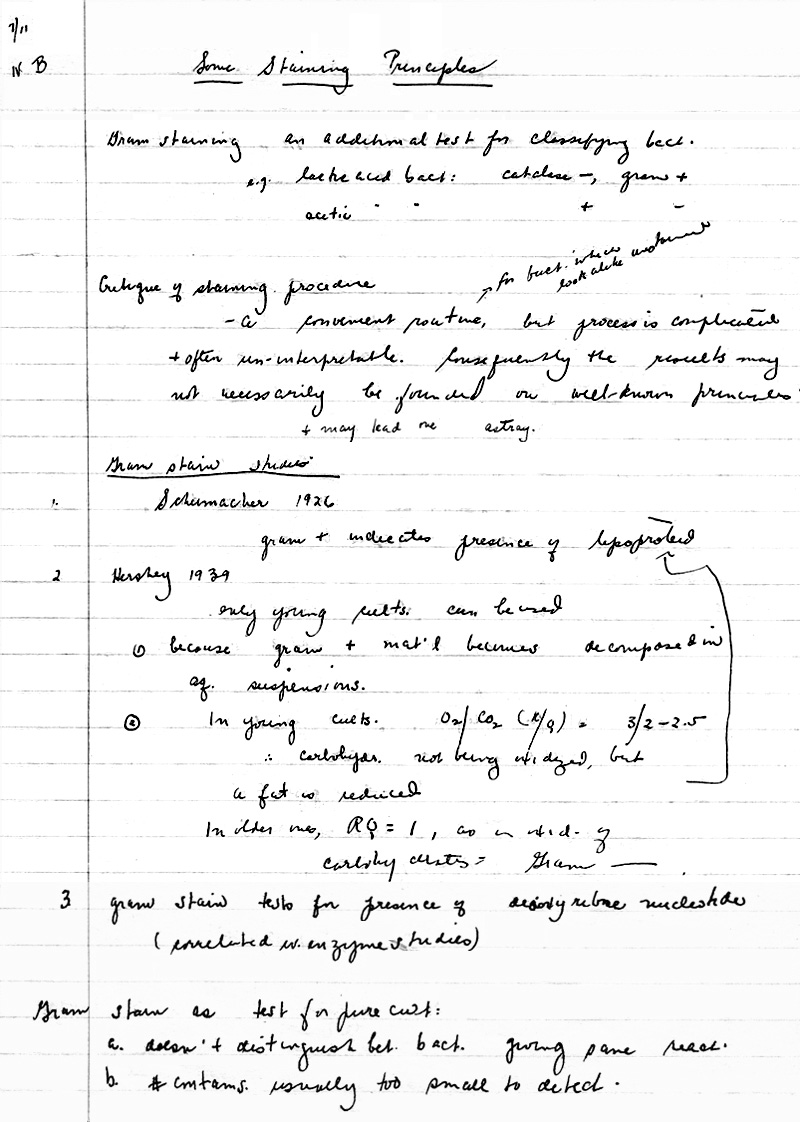 7/11
IV B
Some Staining Principles
Gram staining an additional test for classifying bact.
e.g. lactic acid bact: catalase -, gram +
acetic " " + -
for bact. which
look alike
Critique of staining procedure
- a convenient routine, but process is complicated
+ often un-interpretable. Consequently the results may
not necessarily be founded on well-known principles
+ may lead one astray.
Gram stain studies
1. Schumacher 1926
gram + indicates presence of lipoproteid
2 Hershey 1939
only young cults. can be used
① because gram + mat'l becomes decomposed in
aq. suspensions.
② In young cults. O2/CO2 (R/Q) = 3/2-2.5
∴ carbohydr. not being oxidized, but
a fat is reduced
In older ones, RQ = 1, as in oxid. of
carbohydrates = Gram —
3 gram stain tests for presence of desoxyribose nucleotide
(correlated w. enzyme studies)
Gram stain as test for pure cult:
a. doesn't distinguish bet. bact. giving same react.
b. # contams. usually too small to detect.